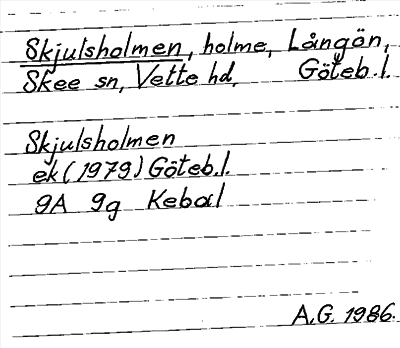 Skjulsholmen, holme, Långön,
Skee sn, Vette hd, Göteb.l.
Skjulsholmen
ek (1979) Göteb.l.
9A 9g Kebal
A.G. 1986.